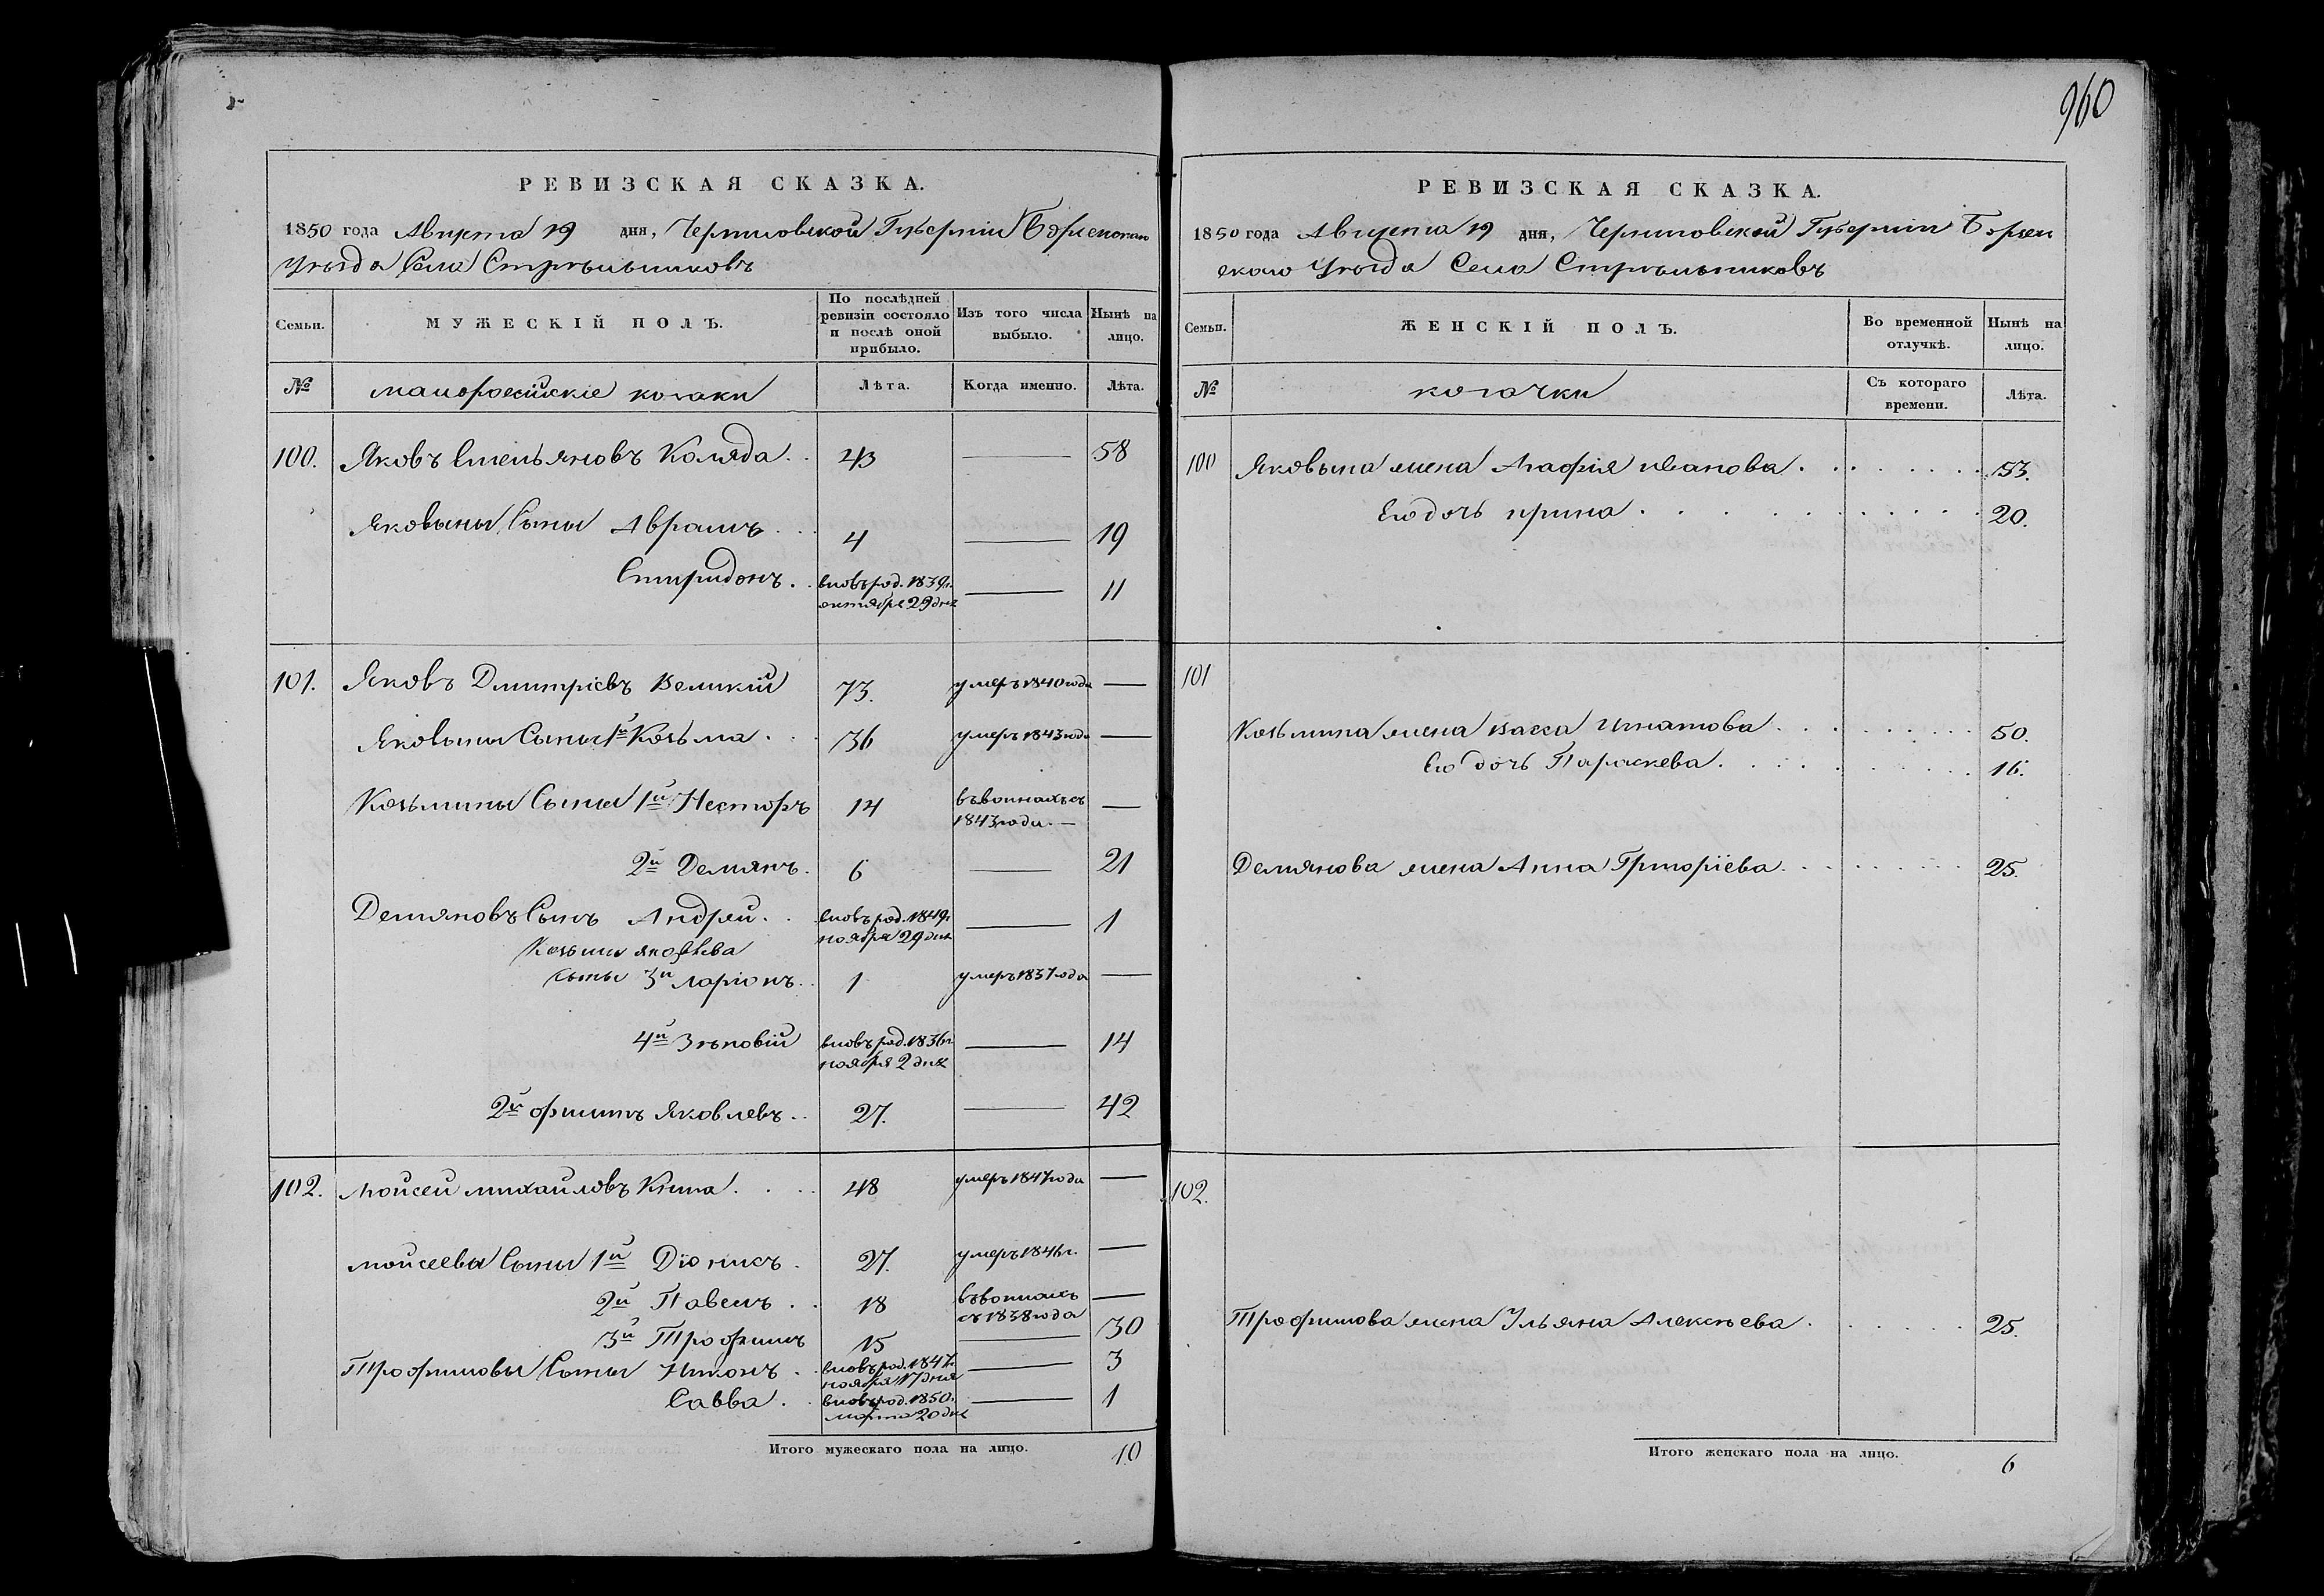 960
РЕВИЗСКАЯ СКАЗКА.
1850 года Августа 19 дня, Черниговской Губернiи Борзенскаго
Уѣзда Села Стрѣльниковъ
Семьи. МУЖЕСКIЙ ПОЛЪ. По послѣдней ревизiи состояло и послѣ оной прибыло. Изъ того числа выбыло. Нынѣ на лицо.
№ малоросiйскiе козаки Лѣта. Когда именно. Лѣта.
100. Яковъ Емельяновъ Коляда . . 43 — 58
Яковыны Сыны Аврамъ . . . 4 — 19
Спиридонъ . . вновь род. 1839г. октября 29 дня — 11
101. Яковъ Дмитрiевъ Великiй 73. умеръ 1840 года —
Яковыны Сыны 1й Козьма . . 36 умеръ 1843 года —
Козьмины Сыны 1й Несторъ 14 въ воинахъ съ 1843 года. — —
2й Демянъ. 6 — 21
Демяновъ Сынъ Андрей . . вновь род. 1849г. ноября 29 дня — 1
Козьмы яковлева
сыны 3й Ларiонъ . . 1 умеръ 1837 года —
4й Зѣновiй вновь род. 1836г. ноября 2 дня — 14
2й филипъ Яковлевъ . . 27. — 42
102. Моисей михайловъ Кiпа . . . . 48 умеръ 1847 года —
моисеевы Сыны 1й Дiонисъ . 27. умеръ 1846г. —
2й Павелъ . . 18 въ воинахъ съ 1838 года —
3й Трофимъ 15 — 30
Трофимовы Сыны Никонъ . . вновь род. 1847г. ноября 17 дня — 3
Савва . . вновь род. 1850г. марта 20 дня — 1
Итого мужескаго пола на лицо. 10
РЕВИЗСКАЯ СКАЗКА.
1850 года Августа 19 дня, Черниговской Губернiи Борзен
скаго Уѣзда Села Стрѣльниковъ
Семьи. ЖЕНСКIЙ ПОЛЪ. Во временной отлучкѣ. Нынѣ на лицо.
№ козачки Съ котораго времени. Лѣта.
100 Яковына жена Агафiя иванова . . . . . . . 53.
Его дочь ирина . . . . . . . . . . 20.
101
Козьмина жена васса Игнатова . . . . . . . . . 50.
Его дочь Параскева . . . . . . . . . . 16.
Демянова жена Анна Григорiева . . . . . . . . 25.
102.
Трофимова жена Ульяна Алексѣева . . . . . . 25.
Итого женскаго пола на лицо. 6